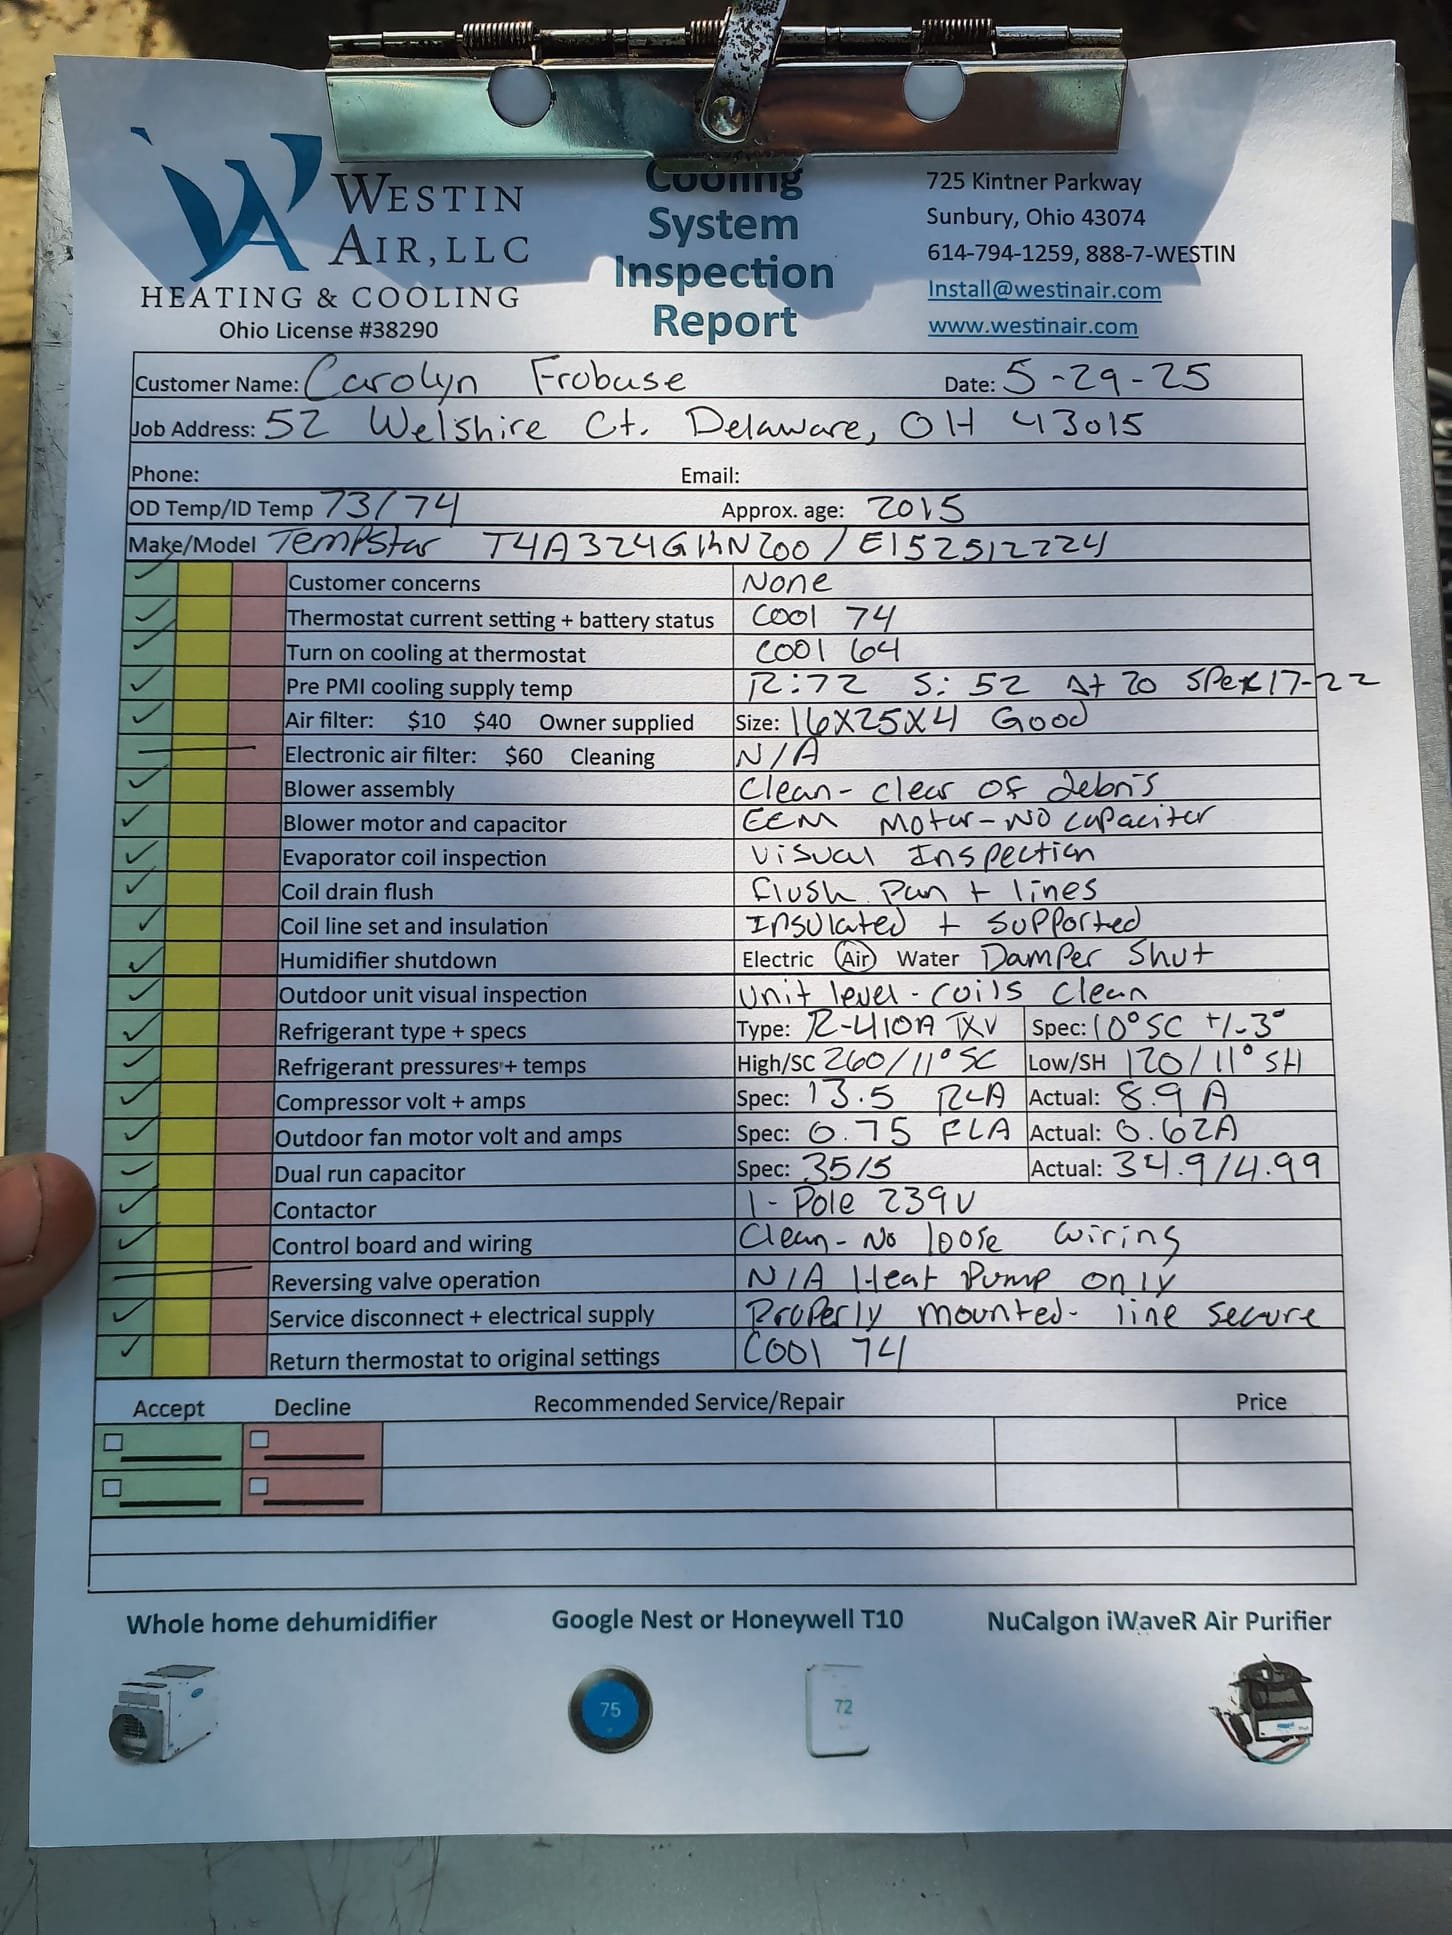 WESTIN
AIR, LLC
HEATING & COOLING
Ohio License #38290
Cooling
System
Inspection
Report
725 Kintner Parkway
Sunbury, Ohio 43074
614-794-1259, 888-7-WESTIN
Install@westinair.com
www.westinair.com
Customer Name: Carolyn Frobuse Date: 5-29-25
Job Address: 52 Welshire Ct. Delaware, OH 43015
Phone: Email:
OD Temp/ID Temp 73/74 Approx. age: 2015
Make/Model Tempstar T4A324GKN200 / E152512224
Customer concerns None
Thermostat current setting + battery status Cool 74
Turn on cooling at thermostat Cool 64
Pre PMI cooling supply temp R:72 S:52 Δt 20 Spec 17-22
Air filter: $10 $40 Owner supplied Size: 16X25X4 Good
Electronic air filter: $60 Cleaning N/A
Blower assembly Clean - clear of debris
Blower motor and capacitor ECM Motor - No capacitor
Evaporator coil inspection Visual Inspection
Coil drain flush flush pan + lines
Coil line set and insulation Insulated + Supported
Humidifier shutdown Electric Air Water Damper Shut
Outdoor unit visual inspection Unit level - coils clean
Refrigerant type + specs Type: R-410A TXV Spec: 10° SC +/- 3°
Refrigerant pressures + temps High/SC 260/11° SC Low/SH 120/11° SH
Compressor volt + amps Spec: 13.5 RLA Actual: 8.9 A
Outdoor fan motor volt and amps Spec: 0.75 FLA Actual: 0.62A
Dual run capacitor Spec: 35/5 Actual: 34.9/4.99
Contactor 1-Pole 239V
Control board and wiring Clean - No loose wiring
Reversing valve operation N/A Heat Pump only
Service disconnect + electrical supply Properly mounted - line secure
Return thermostat to original settings Cool 74
Accept Decline Recommended Service/Repair Price
Whole home dehumidifier Google Nest or Honeywell T10 NuCalgon iWaveR Air Purifier
75
72